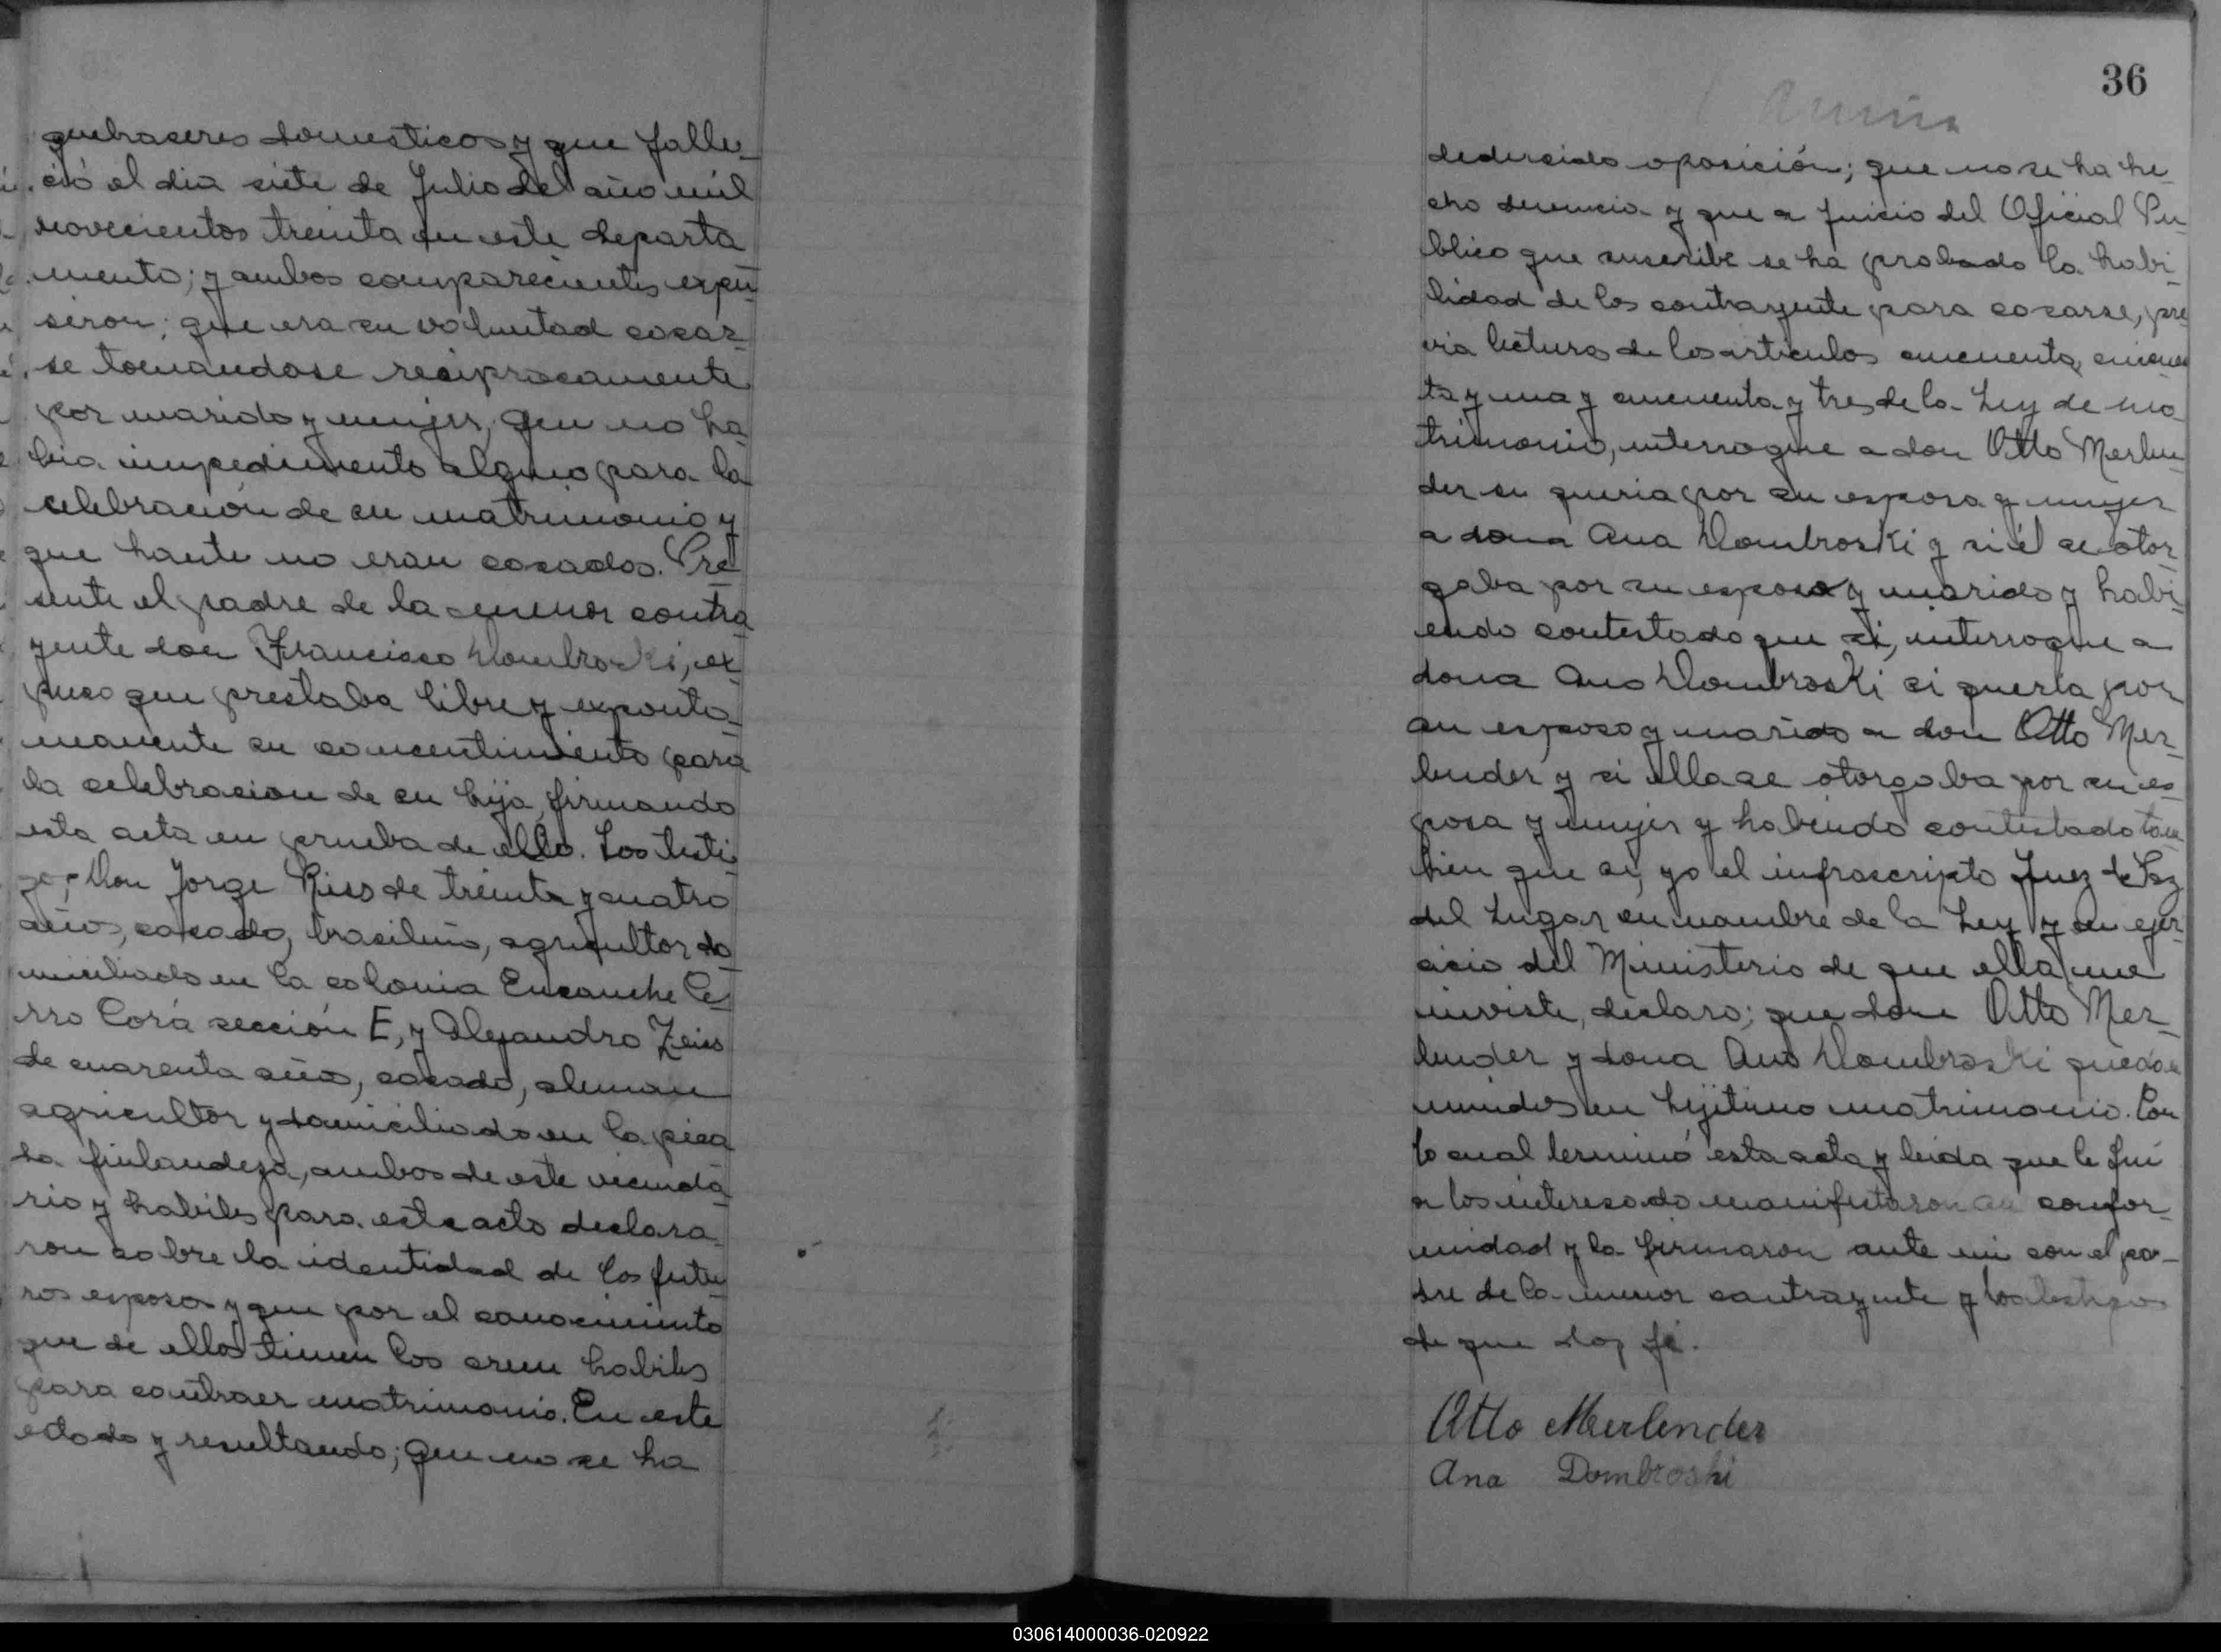 quehaseres domesticos y que falle-
ció el dia siete de Julio del año mil
novecientos treinta en este departa
mento; y ambos comparecientes expu-
sieron; que era su voluntad casar-
se tomandose resiprocamente
por marido y mujer, que no ha-
bia impedimento alguno para la
celebración de su matrimonio y
que hante no eran casados. Pre-
sente el padre de la menor contra-
yente don Francisco Dombroski, ex-
puso que prestaba libre y exponta-
neamente su concentimiento para
la celebracion de su hija, firmando
esta acta en prueba de ello. Los testi-
go, Don Jorge Riss de treinta y cuatro
años, casado, brasileño, agricultor do-
miciliado en la colonia Ensanche Ce-
rro Corá sección E, y Alejandro Zeiss
de cuarenta año, casado, aleman
agricultor y domiciliado en la pica
da finlandeza, ambos de este vecinda-
rio y habiles para este acto declara-
ron sobre la identidad de los futu-
ros esposos y que por el conocimiento
que de ellos tienen los creen habiles
para contraer matrimonio. En este
estado y resultando; que no se ha
36
deducido oposición; que no se ha he-
cho denuncia y que a juicio del Oficial Pu-
blico que suscribe se ha probado la habi-
lidad de los contrayente para casarse, pre
via lectura de los articulos cincuenta, cincuen
ta y uno y cincuenta y tres de la Ley de ma-
trimonio, interrogue a don Otto Merlen-
der si queria por su esposa y mujer
a dona Ana Dombroski y si él se otor-
gaba por su esposo y marido y habi-
endo contestado que si, interrogue a
dona Ana Dombroski si queria por
su esposo y marido a don Otto Mer-
lender y si ella se otorgaba por su es-
posa y mujer y habiendo contestado tam
bien que si, yo el infrascripto Juez de Paz
del Lugar en nombre de la Ley y en ejer-
cicio del Ministerio de que ella me
inviste, declaro; que don Otto Mer-
lender y dona Ana Dombroski quedan
unidos en lejitimo matrimonio. Con
lo cual terminó esta acta y leida que le fui
a los interesado manifestaron su confor-
midad y la firmaron ante mi con el pa-
dre de la menor contrayente y los testigos
de que doy fé.
Otto Merlender
Ana Dombroski
030614000036-020922